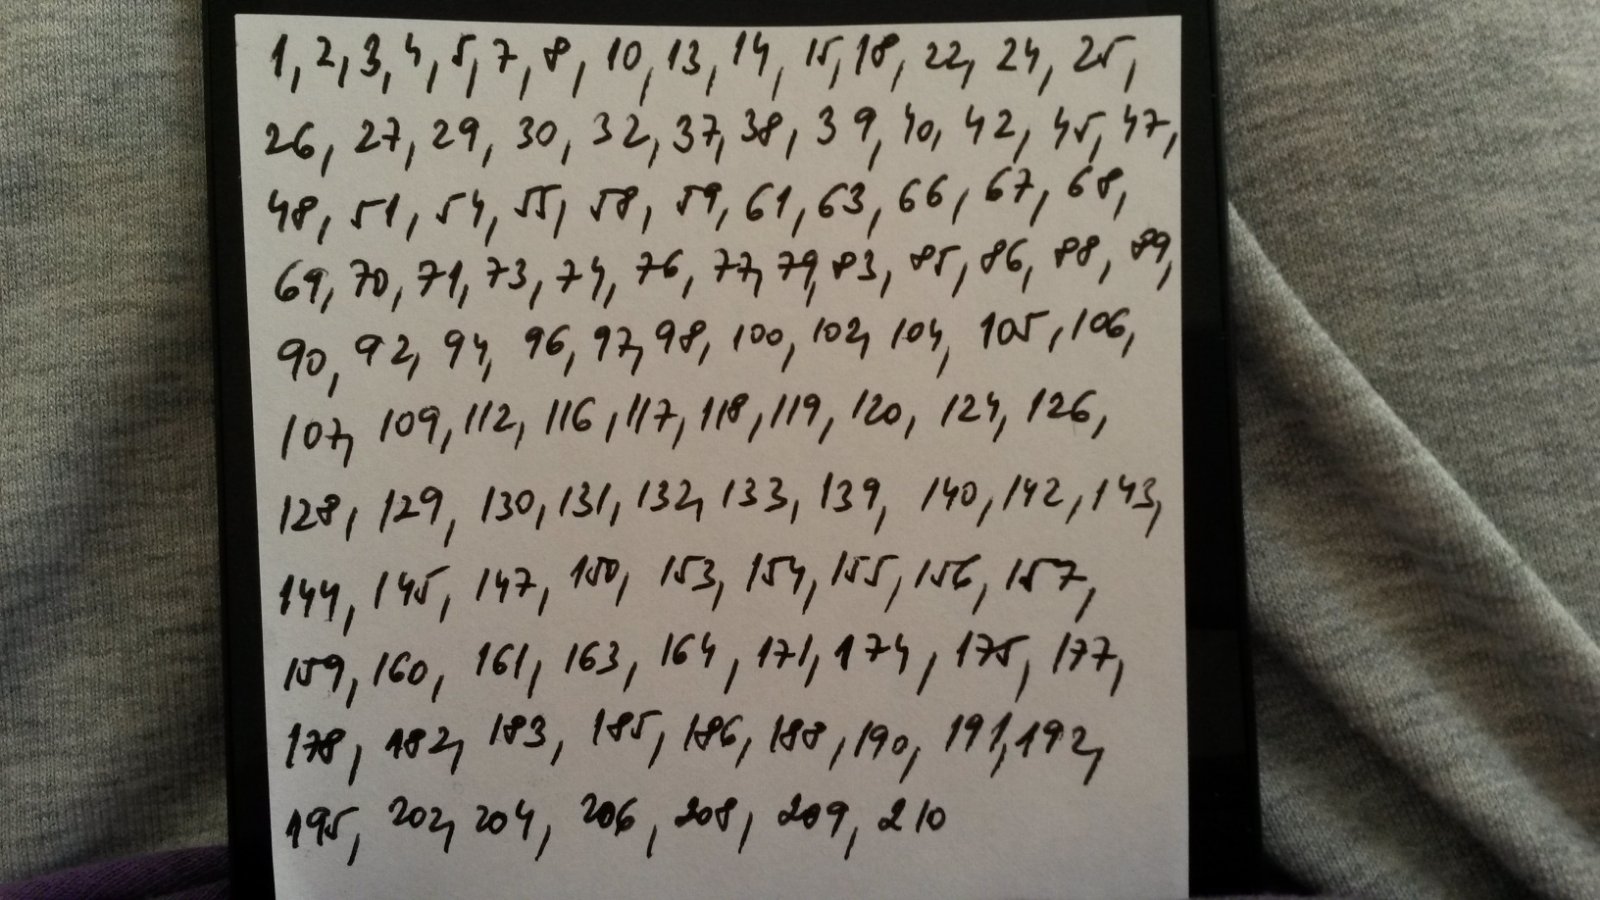 1, 2, 3, 4, 5, 7, 8, 10, 13, 14, 15, 18, 22, 24, 25,
26, 27, 29, 30, 32, 37, 38, 39, 40, 42, 45, 47,
48, 51, 54, 55, 58, 59, 61, 63, 66, 67, 68,
69, 70, 71, 73, 74, 76, 77, 79, 83, 85, 86, 88, 89,
90, 92, 94, 96, 97, 98, 100, 102, 104, 105, 106,
107, 109, 112, 116, 117, 118, 119, 120, 124, 126,
128, 129, 130, 131, 132, 133, 139, 140, 142, 143,
144, 145, 147, 150, 153, 154, 155, 156, 157,
159, 160, 161, 163, 164, 171, 174, 175, 177,
178, 182, 183, 185, 186, 188, 190, 191, 192,
195, 202, 204, 206, 208, 209, 210